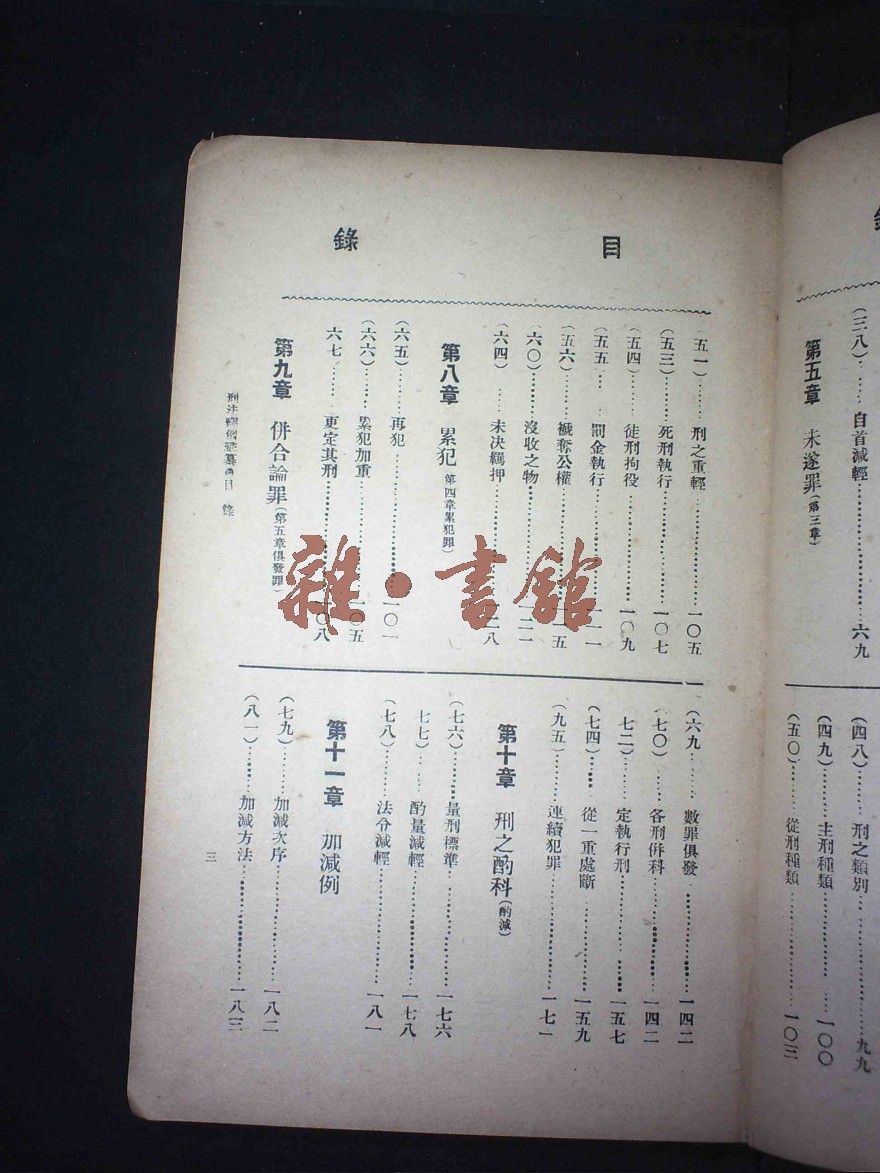 目錄
(三八)……自首減輕……六九
第五章 未遂罪(第三章)
(四八)……刑之類別……九九
(四九)……主刑種類……一〇〇
(五〇)……從刑種類……一〇三
五一)……刑之重輕……一〇五
(五三)……死刑執行……一〇七
(五四)……徒刑拘役……一〇九
(五五……罰金執行……一一一
(五六)……褫奪公權……一一五
六〇)……沒收之物……一二一
(六四)……未決羈押……一二八
第八章 累犯(第四章累犯罪)
(六五)……再犯……一〇一
(六六)……累犯加重……一〇五
六七……更定其刑……一〇八
第九章 併合論罪(第五章俱發罪)
(六九……數罪俱發……一四二
七〇)……各刑併科……一四二
七二)……定執行刑……一五七
(七四)……從一重處斷……一五九
(九五)……連續犯罪……一七一
第十章 刑之酌科(酌減)
(七六)……量刑標準……一七六
七七)……酌量減輕……一七八
(七八)……法令減輕……一八一
第十一章 加減例
(七九)……加減次序……一八二
(八一)……加減方法……一八三
目錄
三
雜·書館